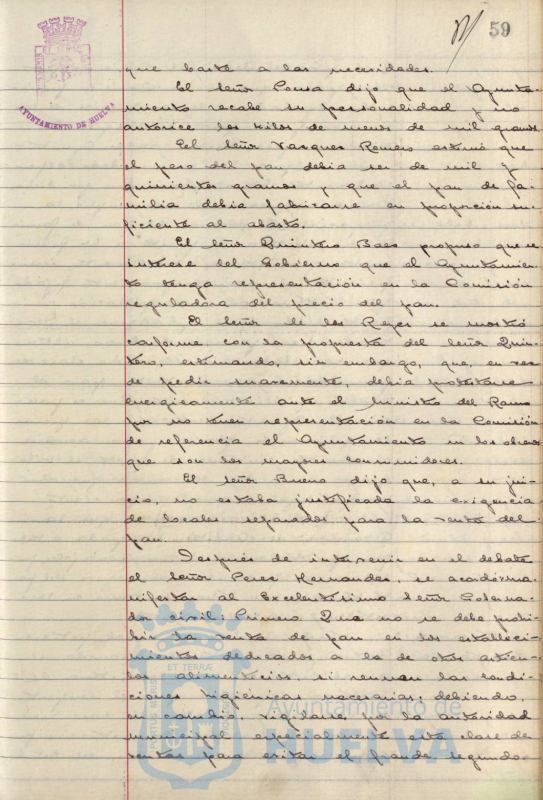 59
AYUNTAMIENTO DE HUELVA
que baste a las necesidades.
El Señor Ponsa dijo que el Ayunta-
miento recabe su personalidad y no
autorice los kilos de menos de mil gramos
El Señor Vazquez Romero estimó que
el peso del pan debia ser de mil y
quinientos gramos y que el pan de fa-
milia debia fabricarse en proporción su-
ficiente al abasto.
El Señor Quintero Baez propuso que se
interese del Gobierno que el Ayuntamien-
to tenga representación en la Comisión
reguladora del precio del pan.
El Señor de los Reyes se mostró
conforme con la propuesta del Señor Quin-
tero, estimando, sin embargo, que, en vez
de pedir suavemente, debia protestarse
energicamente ante el Ministro del Ramo
por no tener representación en la Comisión
de referencia el Ayuntamiento ni los obreros
que son los mayores consumidores.
El Señor Bueno dijo que, a su jui-
cio, no estaba justificada la exigencia
de locales separados para la venta del
pan.
Después de intervenir en el debate
el Señor Perez Hernandez, se acordó ma-
nifestar al Excelentísimo Señor Goberna-
dor civil: Primero Que no se debe prohi-
bir la venta de pan en los estableci-
mientos dedicados a la de otros artícu-
los alimenticios, si reunen las condi-
ciones higiénicas necesarias, debiendo,
en cambio, vigilarse, por la autoridad
municipal especialmente esta clase de
ventas para evitar el fraude, segundo.
ET TERRAE
Ayuntamiento de
HUELVA